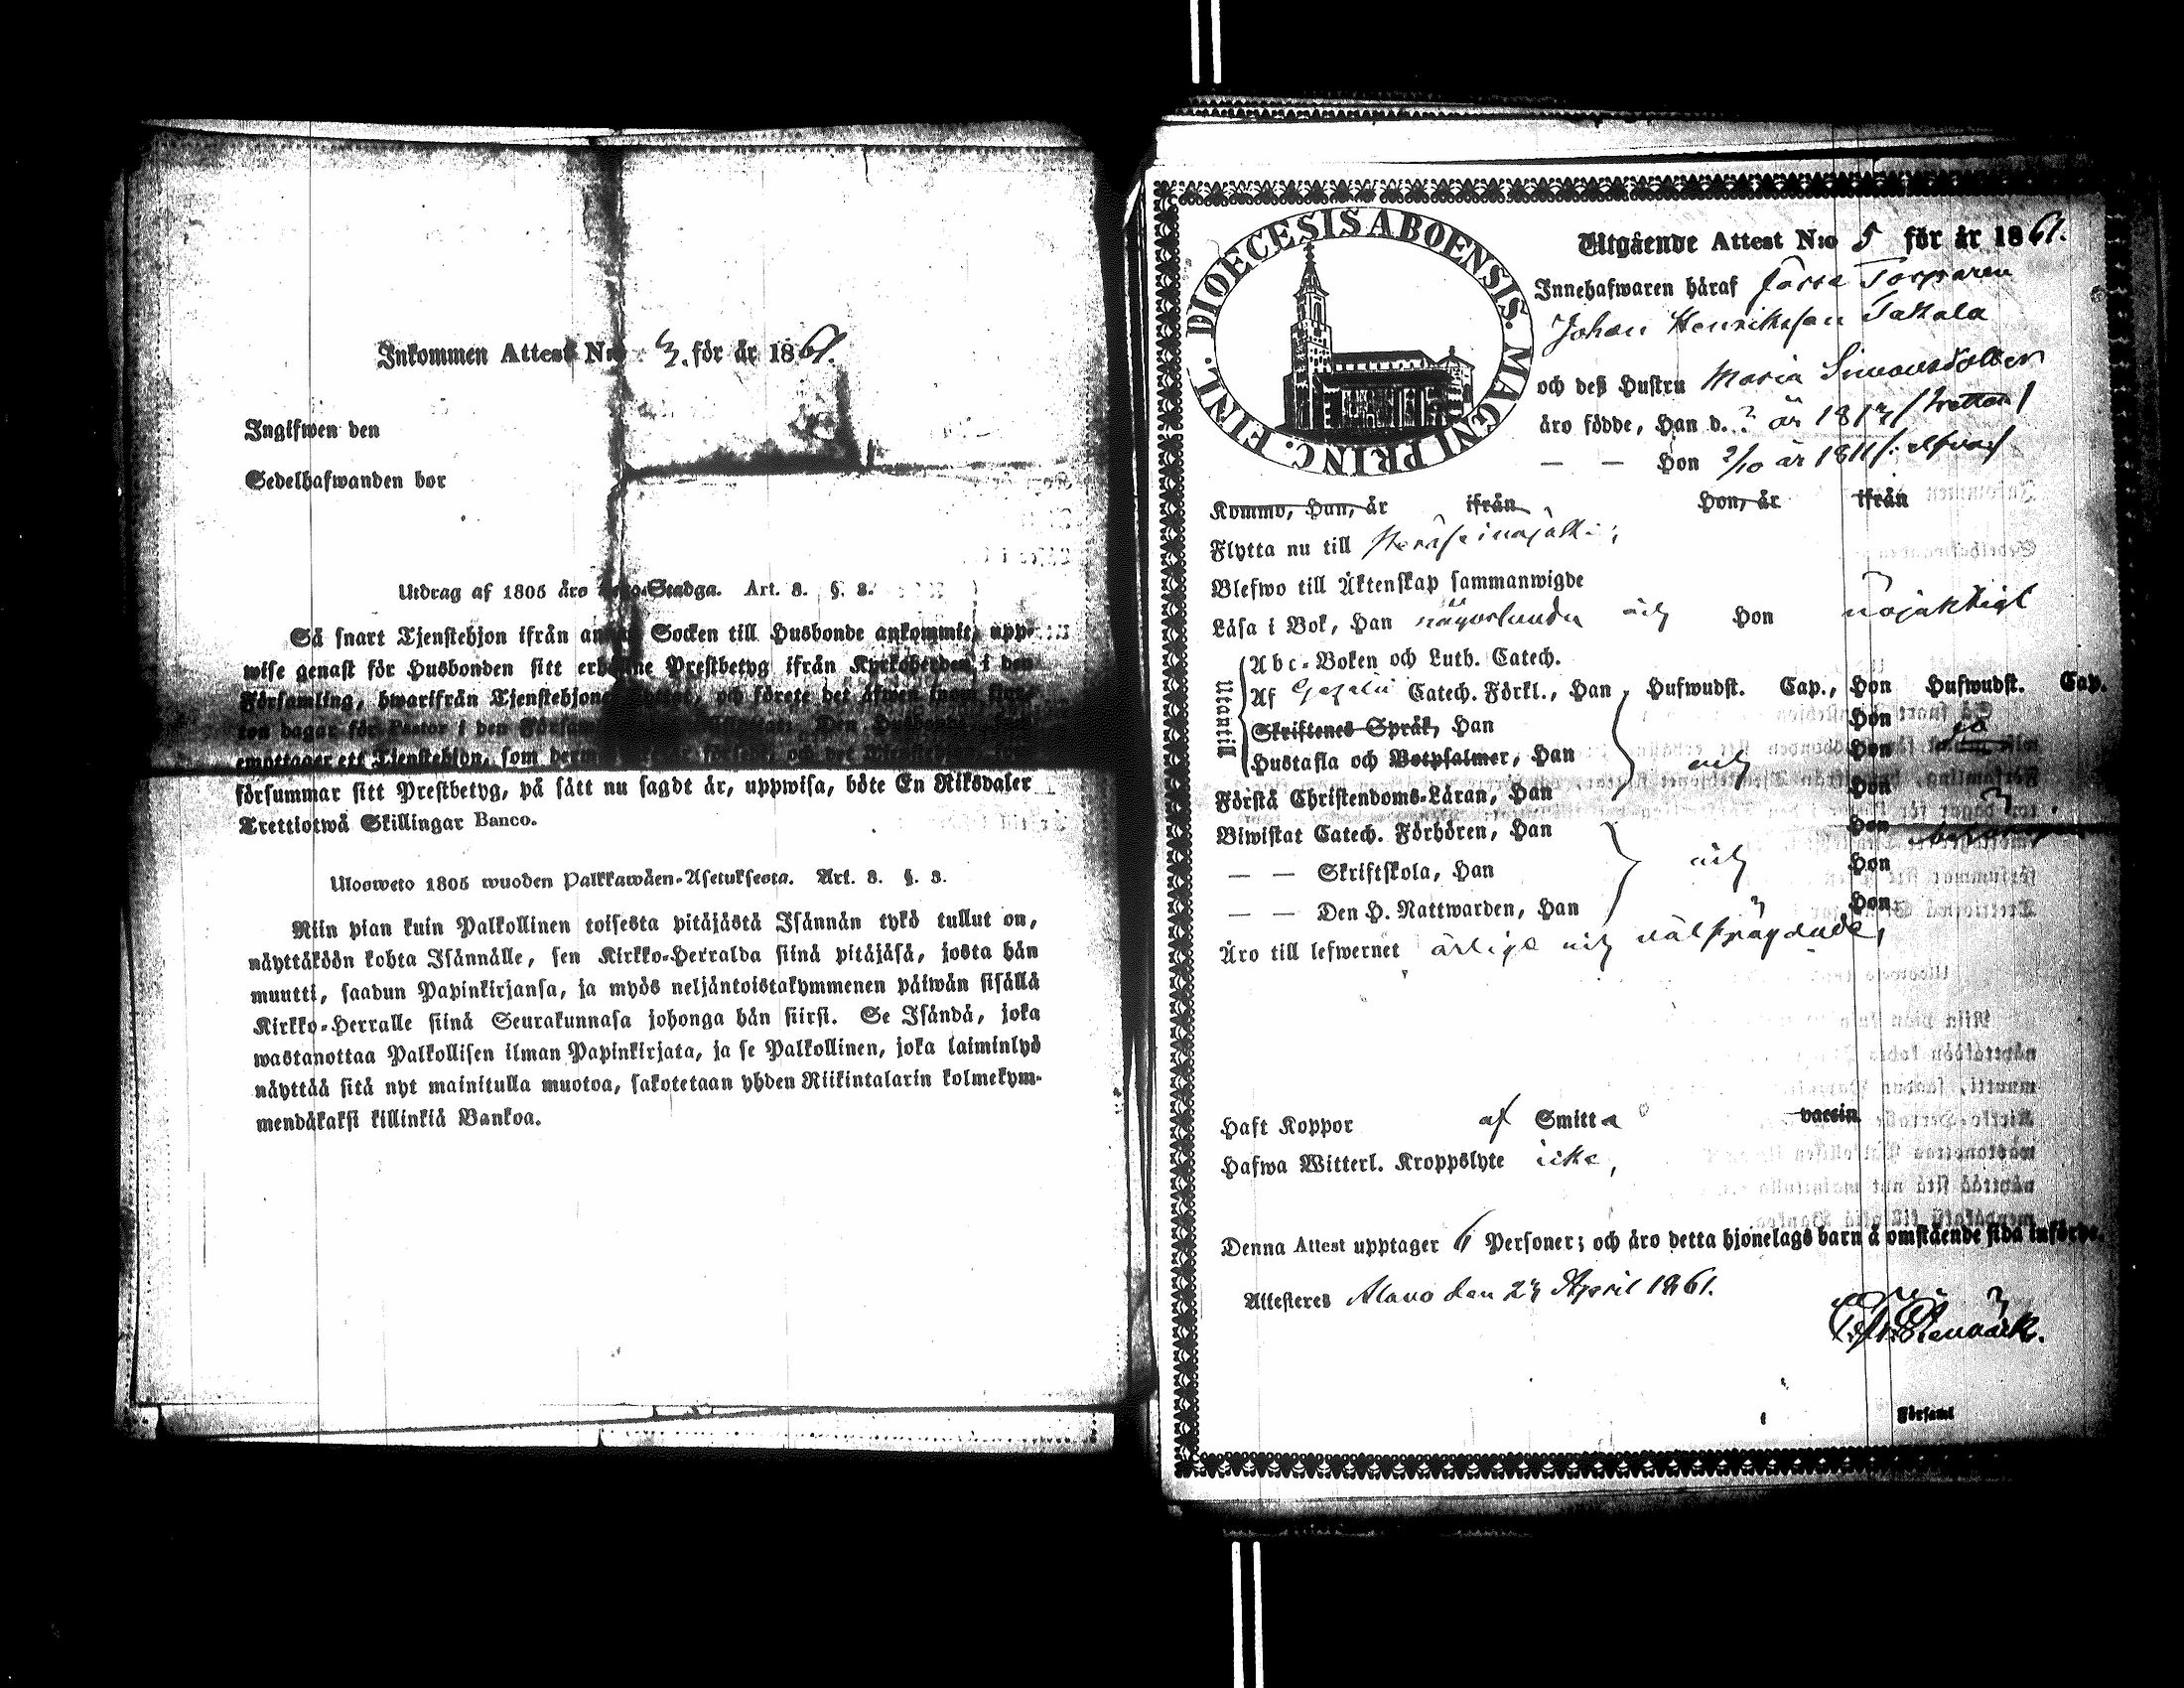 Inkommen Attest N:o 3. för år 1861.
Ingifwen den
Sedelhafwanden bor
Utdrag af 1805 års Lego-Stadga. Art. 8. §. 3.
Så snart Tjenstehjon ifrån annan Socken till Husbonde ankommit, upp-
wise genast för Husbonden sitt erhållne Prestbetyg ifrån Kyrkoherden i den
Församling, hwarifrån Tjenstehjonet flyttat, och förete det äfwen inom fjor-
ton dagar för Pastor i den Församling
emottager ett Tjenstehjon, som
försummar sitt Prestbetyg, på sätt nu sagdt är, uppwisa, böte En Riksdaler
Trettiotwå Skillingar Banco.
Ulosweto 1805 wuoden Palkkawäen-Asetuksesta. Art. 8. §. 3.
Niin pian kuin Palkollinen toisesta pitäjästä Isännän tykö tullut on,
näyttäköön kohta Isännälle, sen Kirkko-Herralda siinä pitäjäsä, josta hän
muutti, saadun Papinkirjansa, ja myös neljäntoistakymmenen päiwän sisällä
Kirkko-Herralle siinä Seurakunnasa johonga hän siirsi. Se Isändä, joka
wastanottaa Palkollisen ilman Papinkirjata, ja se Palkollinen, joka laiminlyö
näyttää sitä nyt mainitulla muotoa, sakotetaan yhden Riikintalarin kolmekym-
mendäkaksi killinkiä Bankoa.
DIOECESIS ABOENSIS. MAGNI PRINC. FINL.
Utgående Attest N:o 5 för år 1861.
Innehafwaren häraf förre Torparen
Johan Henriksson Takala
och deß Hustru Maria Simonsdotter
äro födde, Han d. ? år 1813 /:tretton/
— — Hon 2/10 år 1811 /:elfva/
Kommo, Han, år ifrån Hon, år ifrån
Flytta nu till Peräseinäjoki;
Blefwo till Äktenskap sammanwigde
Läsa i Bok, Han någorlunda och Hon nöjaktigt
Utantill
Abc-Boken och Luth. Catech.
Af Gezelii Catech. Förkl., Han Hufwudst. Cap., Hon Hufwudst. Cap.
Skriftenes Språk, Han Hon
Hustafla och Botpsalmer, Han och Hon
Förstå Christendoms-Läran, Han Hon
Biwistat Catech. Förhören, Han Hon
— — Skriftskola, Han och Hon
— — Den H. Nattwarden, Han Hon
Äro till lefwernet ärliga och välfrägdade,
Haft Koppor af Smitta vaccin
Hafwa Witterl. Kroppslyte icke,
Denna Attest upptager 6 Personer; och äro detta hjonelags barn å omstående sida införde.
Attesteres Alavo den 23 April 1861.
Församl